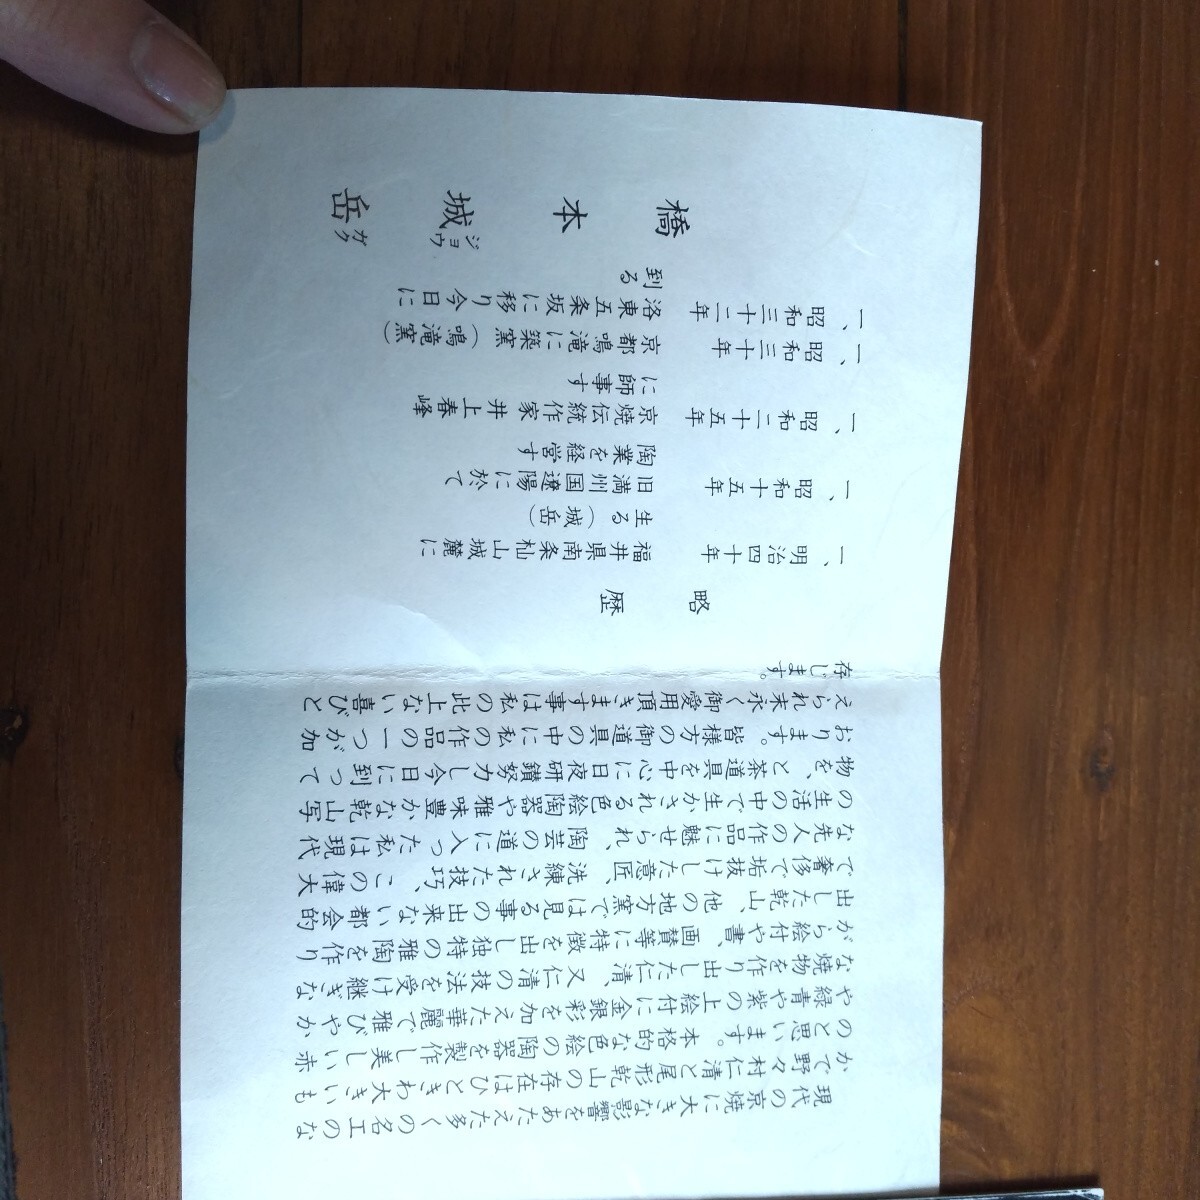 現代の京焼に大きな影響をあたえた多くの名工のな
かで野々村仁清と尾形乾山の存在はひときわ大きいも
のと思います。本格的な色絵の陶器を製作し美しい赤
や緑青や紫の上絵付に金銀彩を加えた華麗で雅びやか
な焼物を作り出した仁清、又仁清の技法を受け継ぎな
がら絵付や書、画賛等に特徴を出し独特の雅陶を作り
出した乾山、他の地方窯では見る事の出来ない都会的
で奢侈で垢抜けした意匠、洗練された技巧、この偉大
な先人の作品に魅せられ、陶芸の道に入った私は現代
の生活の中で生かされる色絵陶器や雅味豊かな乾山写
物を、と茶道具を中心に日夜研鑽努力し今日に到って
おります。皆様方の御道具の中に私の作品の一つが加
えられ末永く御愛用頂きます事は私の此上ない喜びと
存じます。
略歴
一、明治四十年 福井県南条杣山城麓に
生る（城岳）
一、昭和十五年 旧満州国遼陽に於て
陶業を経営す
一、昭和二十五年 京焼伝統作家井上春峰
に師事す
一、昭和三十年 京都鳴滝に築窯（鳴滝窯）
一、昭和三十二年 洛東五条坂に移り今日に
到る
橋本城岳
ジョウガク